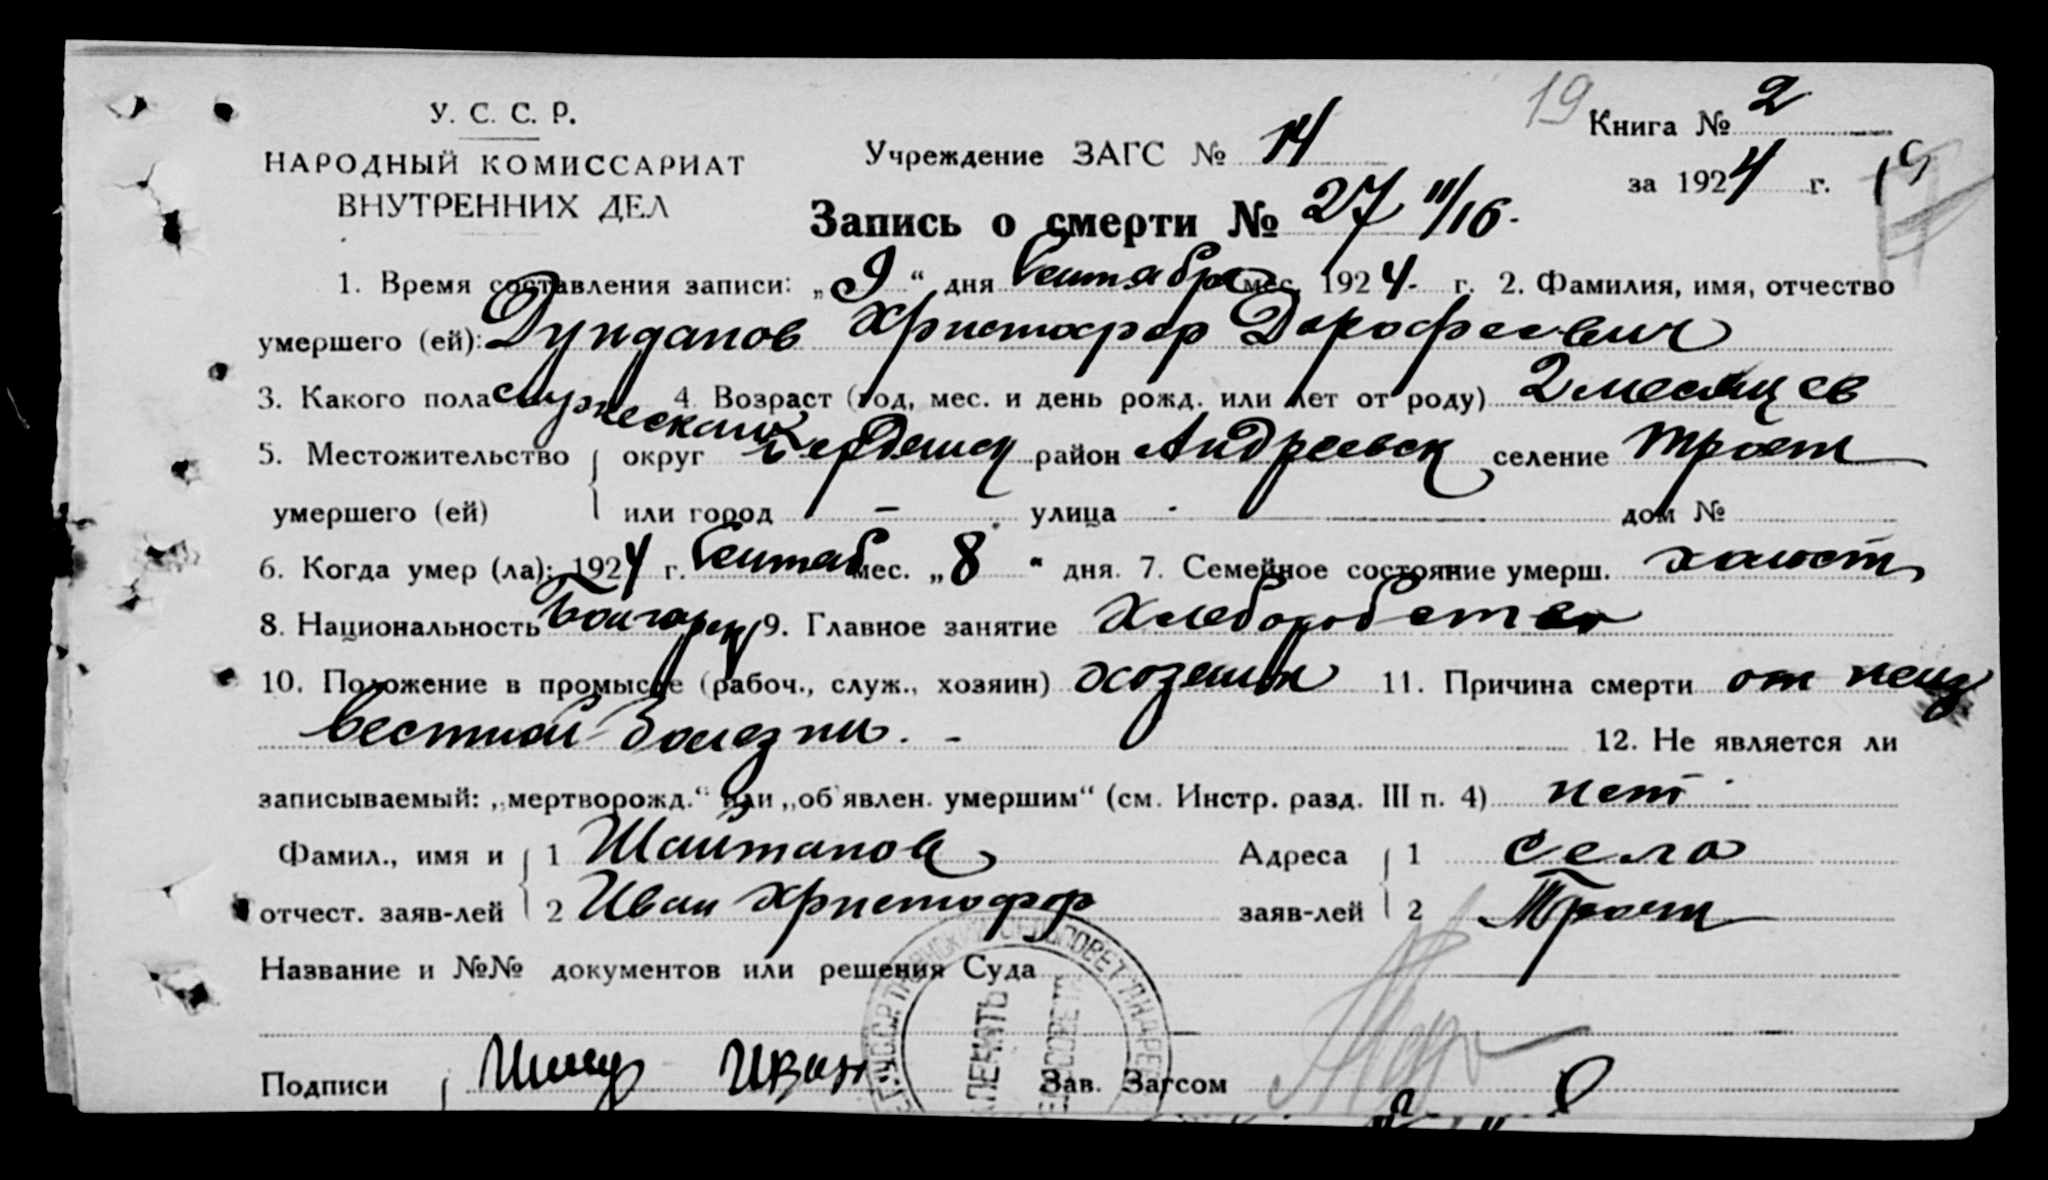 У. С. С. Р.
НАРОДНЫЙ КОМИССАРИАТ
ВНУТРЕННИХ ДЕЛ
19 Книга № 2
Учреждение ЗАГС № 14
за 1924 г. 19
Запись о смерти № 27 11/16.
1. Время составления записи: „9“ дня Сентября мес. 1924 г. 2. Фамилия, имя, отчество
умершего (ей): Дундапов Христофор Дорофеевич
3. Какого пола мужеского 4. Возраст (год, мес. и день рожд. или лет от роду) 2 месяцев
5. Местожительство округ Бердянск район Андреевск селение Троян
умершего (ей) или город - улица - дом №
6. Когда умер (ла): 1924 г. Сентяб мес. „8“ дня. 7. Семейное состояние умерш. холост
8. Национальность Болгарец 9. Главное занятие Хлеборобство
10. Положение в промысле (рабоч., служ., хозяин) хозеин 11. Причина смерти от неиз
вестной болезни. -
12. Не является ли
записываемый: „мертворожд.“ или „об'явлен. умершим“ (см. Инстр. разд. III п. 4) нет
Фамил., имя и 1 Шайтанов Адреса 1 села
отчест. заяв-лей 2 Иван Христофор заяв-лей 2 Троян
Название и №№ документов или решения Суда
Подписи Иван Зав. Загсом
ПЕЧАТЬ